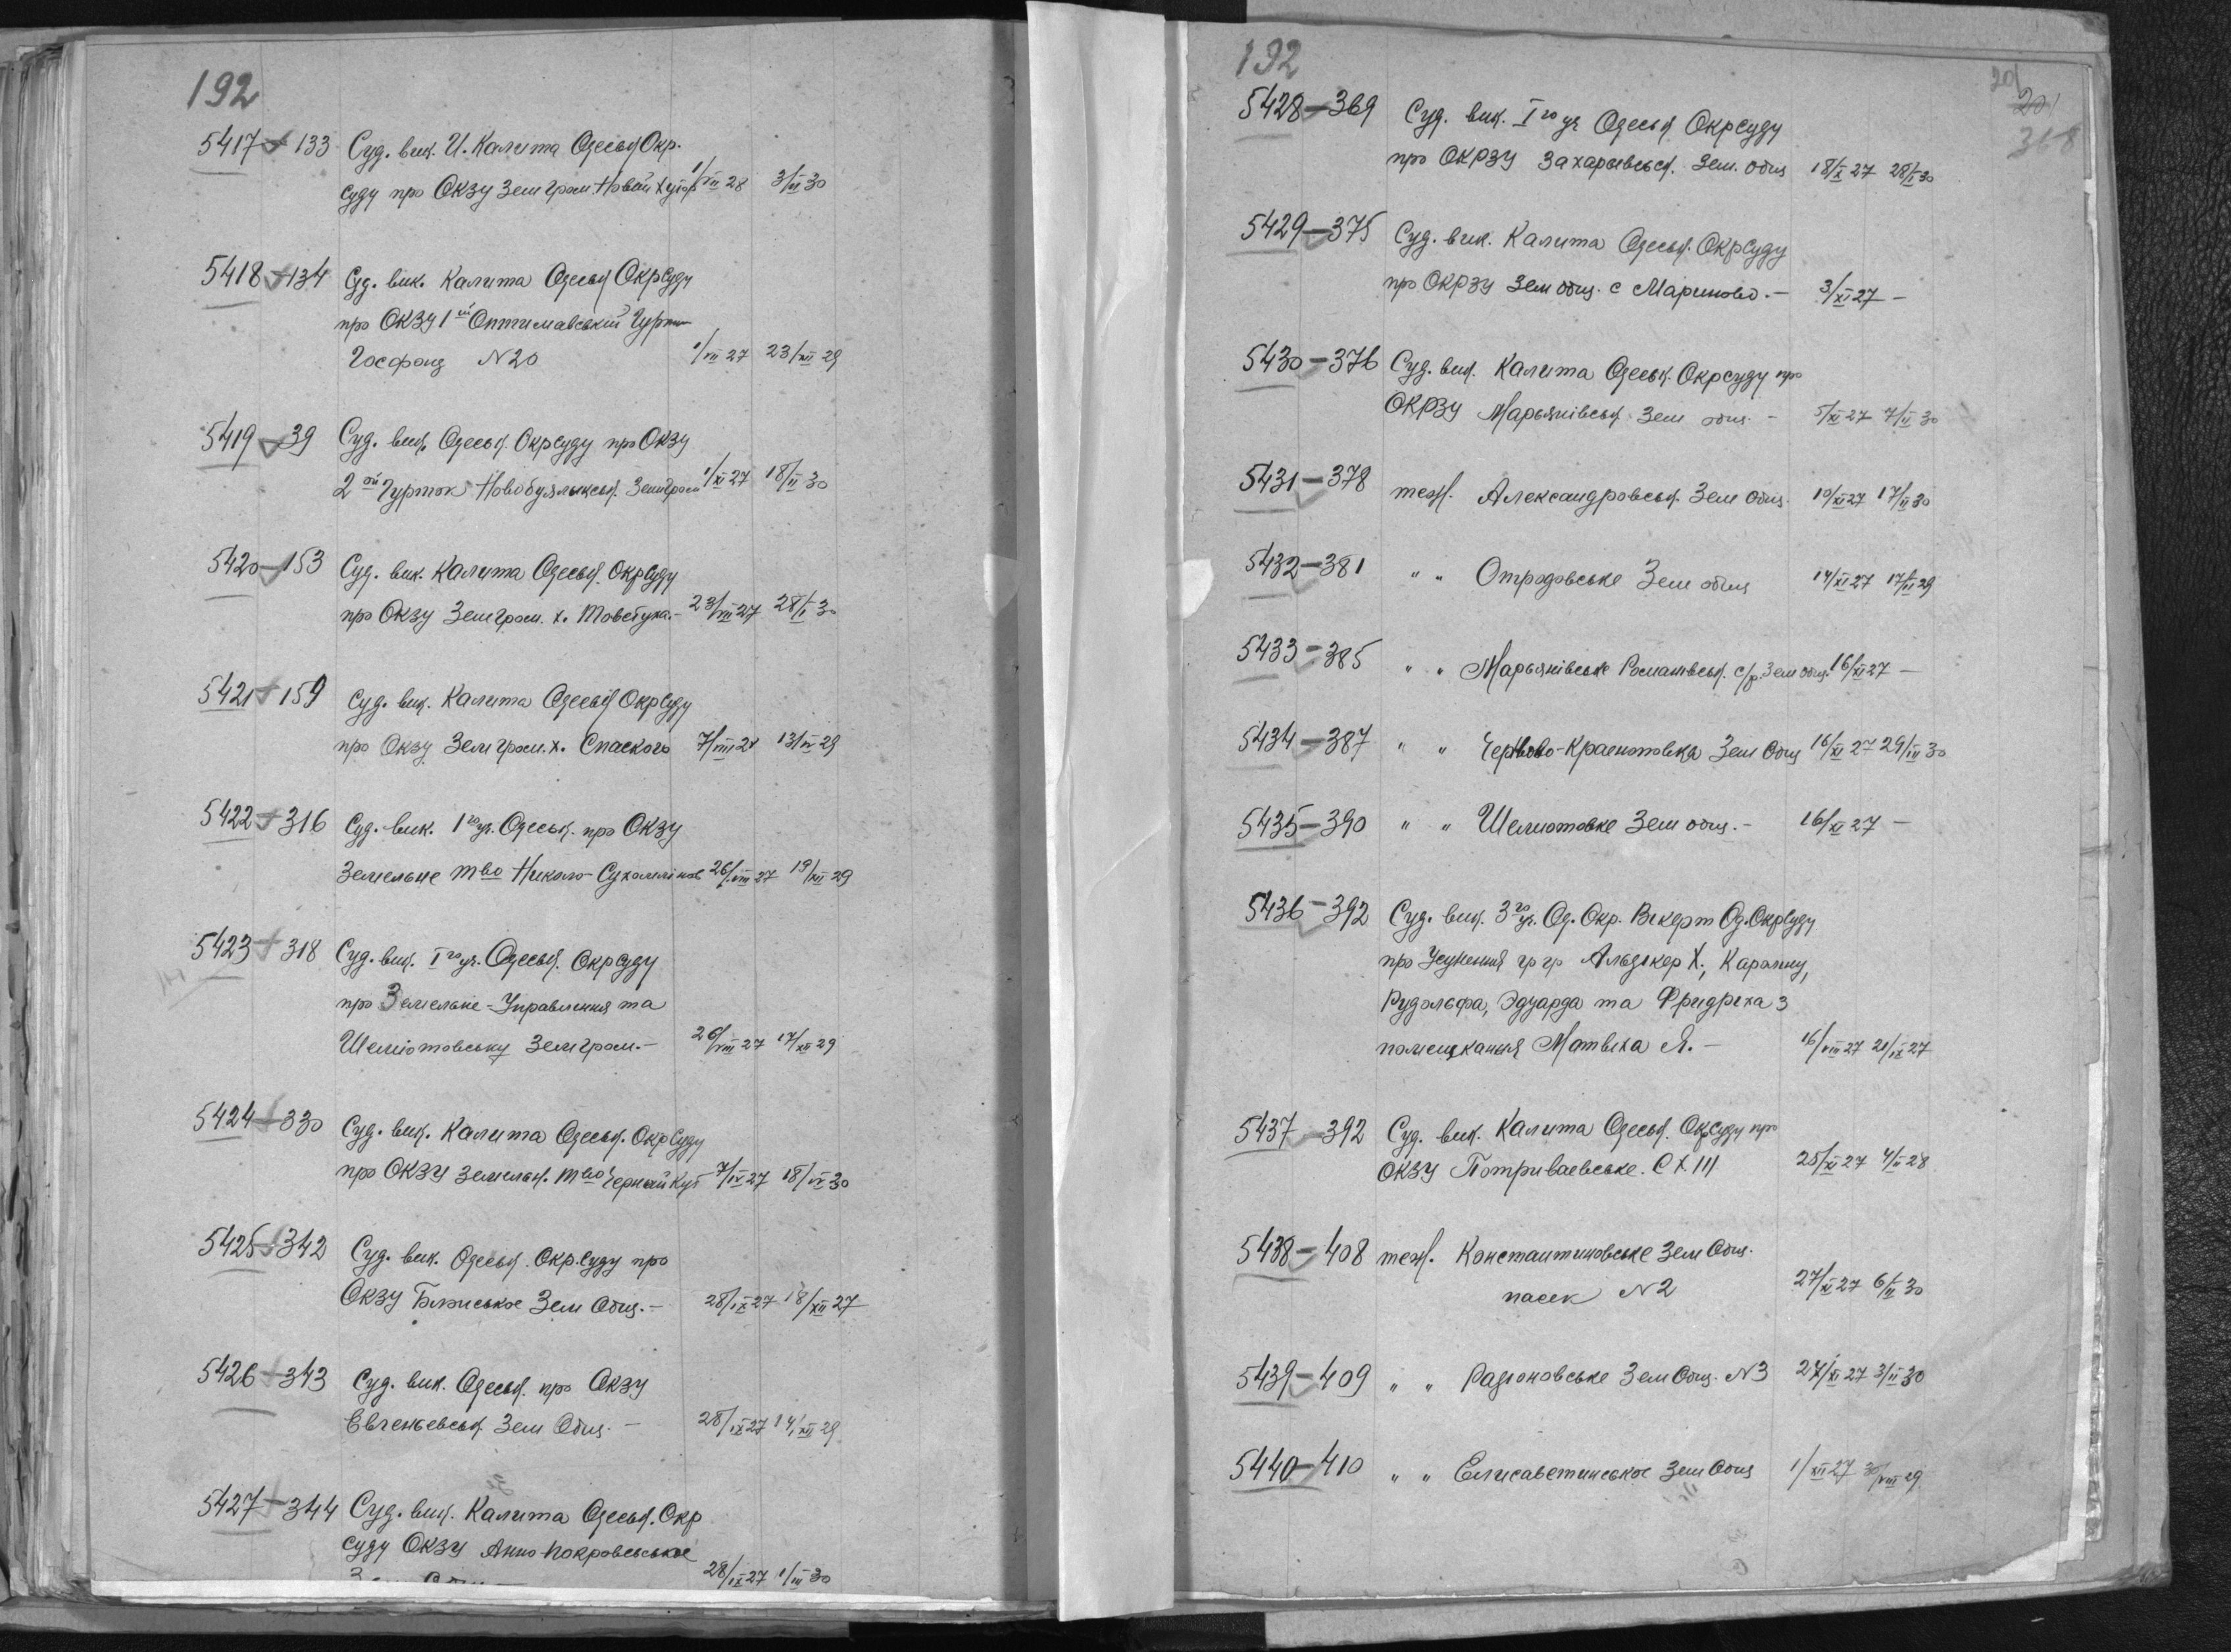 192
5417 - 133 Суд. вик. И. Калита Одеськ Окр.
суду про ОКЗУ Земгром. Новый Хутор 1/VII 28 3/II 30
5418 - 134 Суд. вик. Калита Одеськ ОкрСуду
про ОКЗУ 1ый Оптимавський Гурток
Госфонд N 20 1/VII 27 23/XII 29
5419 - 39 Суд. вик. Одеськ. ОкрСуду про ОКЗУ
2ой Гурток Новобуялыкськ. Земгром 1/XI 27 18/II 30
5420 - 153 Суд. вик. Калита Одеськ. ОкрСуду
про ОКЗУ Земгром. х. 23/VIII 27 28/I 30
5421 - 159 Суд. вик. Калита Одеськ ОкрСуду
про ОКЗУ Земгром. х. Спаского 7/VIII 27 13/VI 29
5422 - 316 Суд. вик. 1го уч. Одеськ. про ОКЗУ
Земельне Тво Николо-Сухомлінов 26/VIII 27 19/XII 29
5423 - 318 Суд. вик. Iго уч. Одеськ. ОкрСуду
про Земельне-Управління та
Шеміотовську Земгром.- 26/VIII 27 17/XII 29
5424 - 330 Суд. вик. Калита Одеськ. ОкрСуду
про ОКЗУ Земельн. Тво Черный Кут 7/IX 27 18/IX 30
5425 - 342 Суд. вик. Одеськ. Окр.Суду про
ОКЗУ Зем Общ.- 28/IX 27 18/XII 27
5426 - 343 Суд. вик. Одеськ. про ОКЗУ
Евгеньевськ. Зем Общ.- 28/IX 27 14/XII 29
5427 - 344 Суд. вик. Калита Одеськ. Окр
суду ОКЗУ Анно-Покровськое
28/IX 27 1/III 30
192
201
318
5428 - 369 Суд. вик. Iго уч Одеськ ОкрСуду
про ОКРЗУ Захарьівськ. Зем. общ 18/X 27 28/I 30
5429 - 375 Суд. вик. Калита Одеськ. ОкрСуду
про ОКРЗУ Зем общ. с Мариново.- 3/XI 27 -
5430 - 376 Суд. вик. Калита Одеськ. ОкрСуду про
ОКРЗУ Марьянівськ. Зем общ.- 5/XI 27 7/II 30
5431 - 378 теж. Александровськ. Зем Общ. 10/XI 27 17/II 30
5432 - 381 " " Отродовське Зем общ 14/XI 27 17/VII 29
5433 - 385 " " Марьянівське с/р. Зем общ. 16/XI 27 -
5434 - 387 " " Зем Общ 16/XI 27 29/III 30
5435 - 390 " " Шемиотовке Зем общ.- 16/XI 27 -
5436 - 392 Суд. вик. 3го уч. Од. Окр. Векерт Од.ОкрСуду
про Усунення гр гр Альдкер Х., Каролину,
Рудольфа, Эдуарда та Фридриха з
помещканыя Матвиха Я.- 16/VIII 27 21/IX 27
5437 - 392 Суд. вик. Калита Одеськ. ОкрСуду про
ОКЗУ Потриваевське. С Х Ш 25/XI 27 4/II 28
5438 - 408 теж. Константиновське Зем Общ.
пасек N 2 27/XI 27 6/II 30
5439 - 409 " " Радіоновське Зем Общ. N 3 27/XI 27 3/II 30
5440 - 410 " " Елисаветинськое Зем Общ 1/XII 27 30/VIII 29